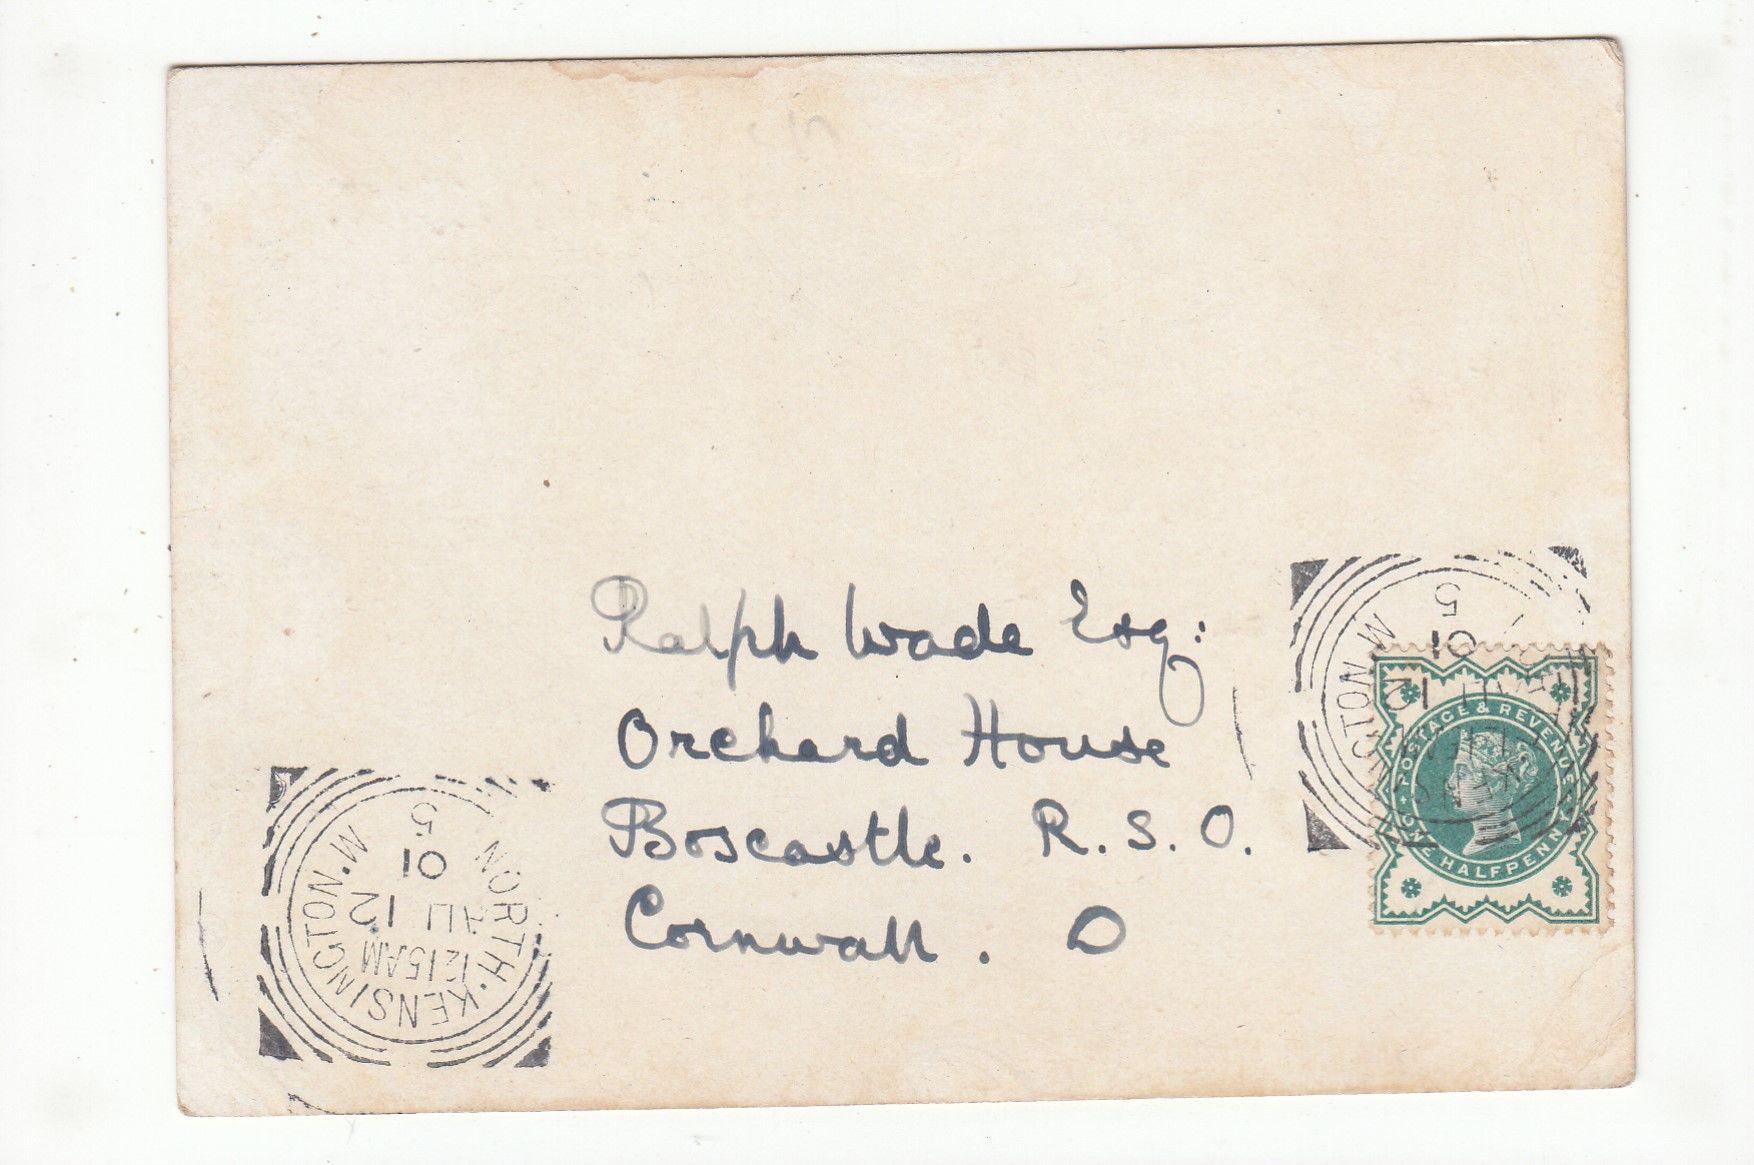 Ralph Wade Esq:
Orchard House
Boscastle. R.S.O.
Cornwall.
NORTH·KENSINGTON.W
12 15AM
AU 12
01
5
KENSINGTON.W
AU 12
01
5
POSTAGE & REVENUE
ONE HALFPENNY